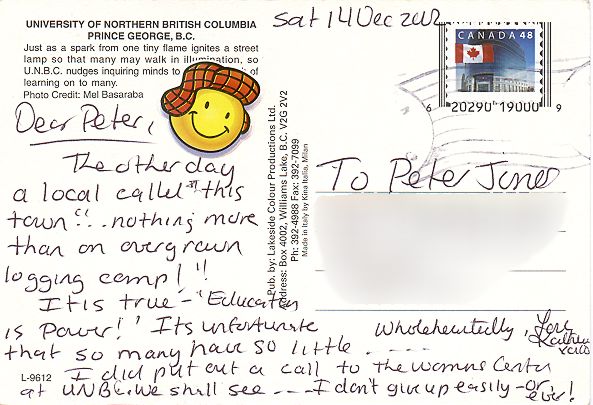 UNIVERSITY OF NORTHERN BRITISH COLUMBIA
PRINCE GEORGE, B.C.
Just as a spark from one tiny flame ignites a street
lamp so that many may walk in illumination, so
U.N.B.C. nudges inquiring minds to of
learning on to many.
Photo Credit: Mel Basaraba
Sat 14 Dec 2002
CANADA 48
6 20290 19000 9
Dear Peter,
The other day
a local called "this
town"...nothing more
than an overgrown
logging camp!"
It is true - "Education
is Power!" Its unfortunate
that so many have so little .....
I did put out a call to the Womens Center
at UNBC. We shall see .... I don't give up easily - or, ever!
L-9612
Pub. by: Lakeside Colour Productions Ltd.
Address: Box 4002, Williams Lake, B.C. V2G 2V2
Ph: 392-4988 Fax: 392-7099
Made in Italy by Kina Italia, Milan
To Peter Jones
Wholeheartedly, Love